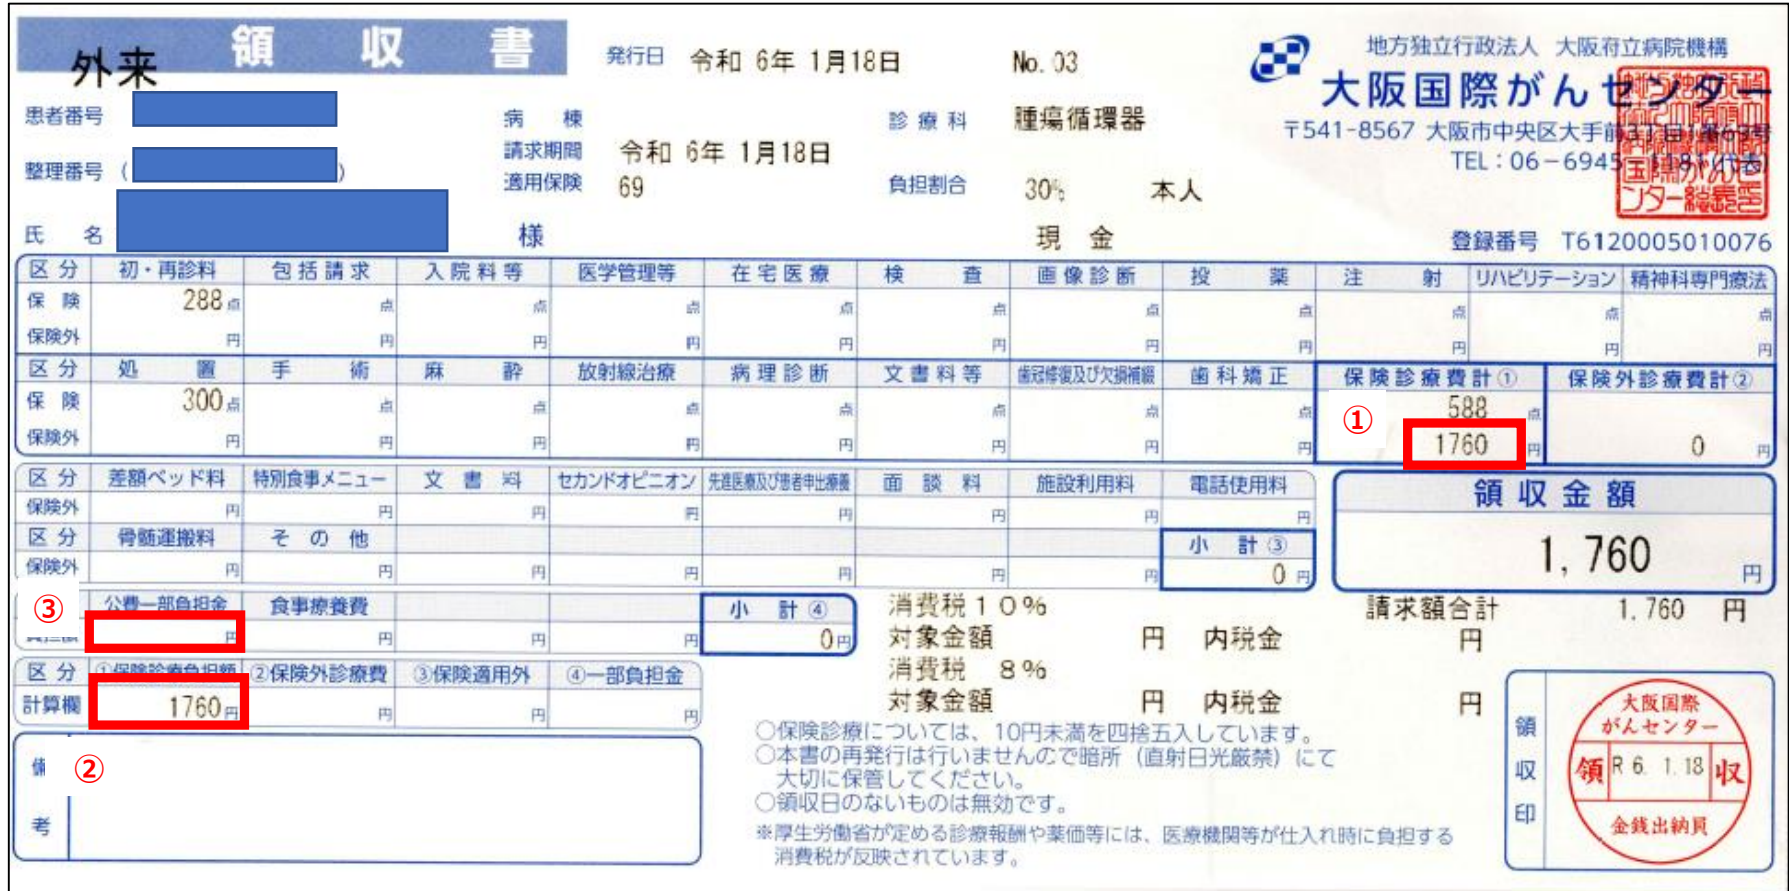 領収書
外来
発行日 令和 6年 1月18日 No. 03
地方独立行政法人 大阪府立病院機構
大阪国際がんセンター
〒541-8567 大阪市中央区大手前3丁目1番69号
TEL：06－6945－1181(代表)
患者番号
病棟
診療科 腫瘍循環器
請求期間 令和 6年 1月18日
整理番号 ( )
適用保険 69
負担割合 30% 本人
氏名 様
現金
登録番号 T6120005010076
区分 初・再診料 包括請求 入院料等 医学管理等 在宅医療 検査 画像診断 投薬 注射 リハビリテーション 精神科専門療法
保険 288点 点 点 点 点 点 点 点 点 点 点
保険外 円 円 円 円 円 円 円 円 円 円 円
区分 処置 手術 麻酔 放射線治療 病理診断 文書料等 歯冠修復及び欠損補綴 歯科矯正 保険診療費計① 保険外診療費計②
保険 300点 点 点 点 点 点 点 点 588点
①
保険外 円 円 円 円 円 円 円 円 1760円 0円
区分 差額ベッド料 特別食事メニュー 文書料 セカンドオピニオン 先進医療及び患者申出療養 面談料 施設利用料 電話使用料
保険外 円 円 円 円 円 円 円 円
領収金額
1,760円
区分 骨髄運搬料 その他 小計③
保険外 円 円 円 円 円 円 円 0円
③
公費一部負担金 食事療養費 小計④
円 円 円 円 0円
消費税10%
対象金額 円 内税金 円
消費税 8%
対象金額 円 内税金 円
請求額合計 1,760 円
区分 ①保険診療負担額 ②保険外診療費 ③保険適用外 ④一部負担金
計算欄 1760円 円 円 円
②
備考
○保険診療については、10円未満を四捨五入しています。
○本書の再発行は行いませんので暗所（直射日光厳禁）にて
大切に保管してください。
○領収日のないものは無効です。
※厚生労働省が定める診療報酬や薬価等には、医療機関等が仕入れ時に負担する
消費税が反映されています。
領収印
大阪国際
がんセンター
領 R 6. 1.18 収
金銭出納員